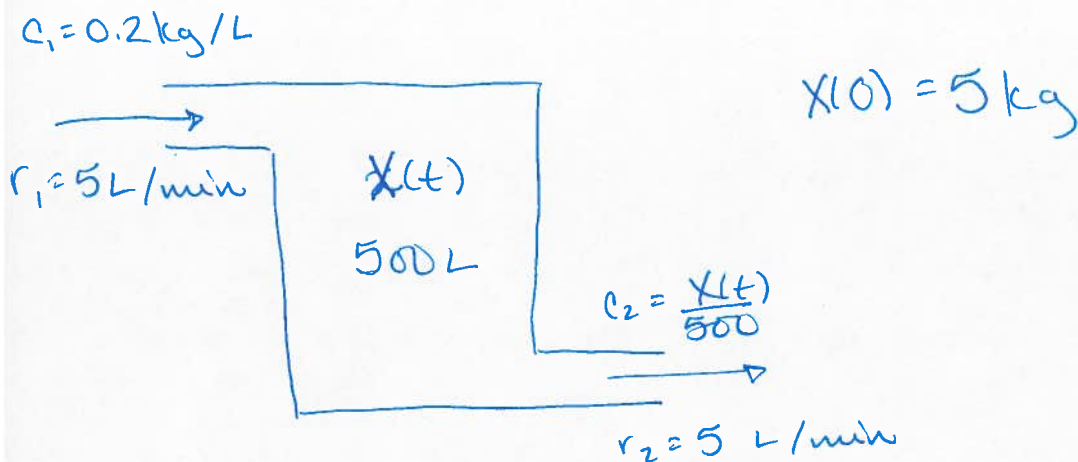 C₁=0.2kg/L
X(0) = 5 kg
r₁=5L/min
X(t)
500L
C₂ = X(t)/500
r₂=5 L/min